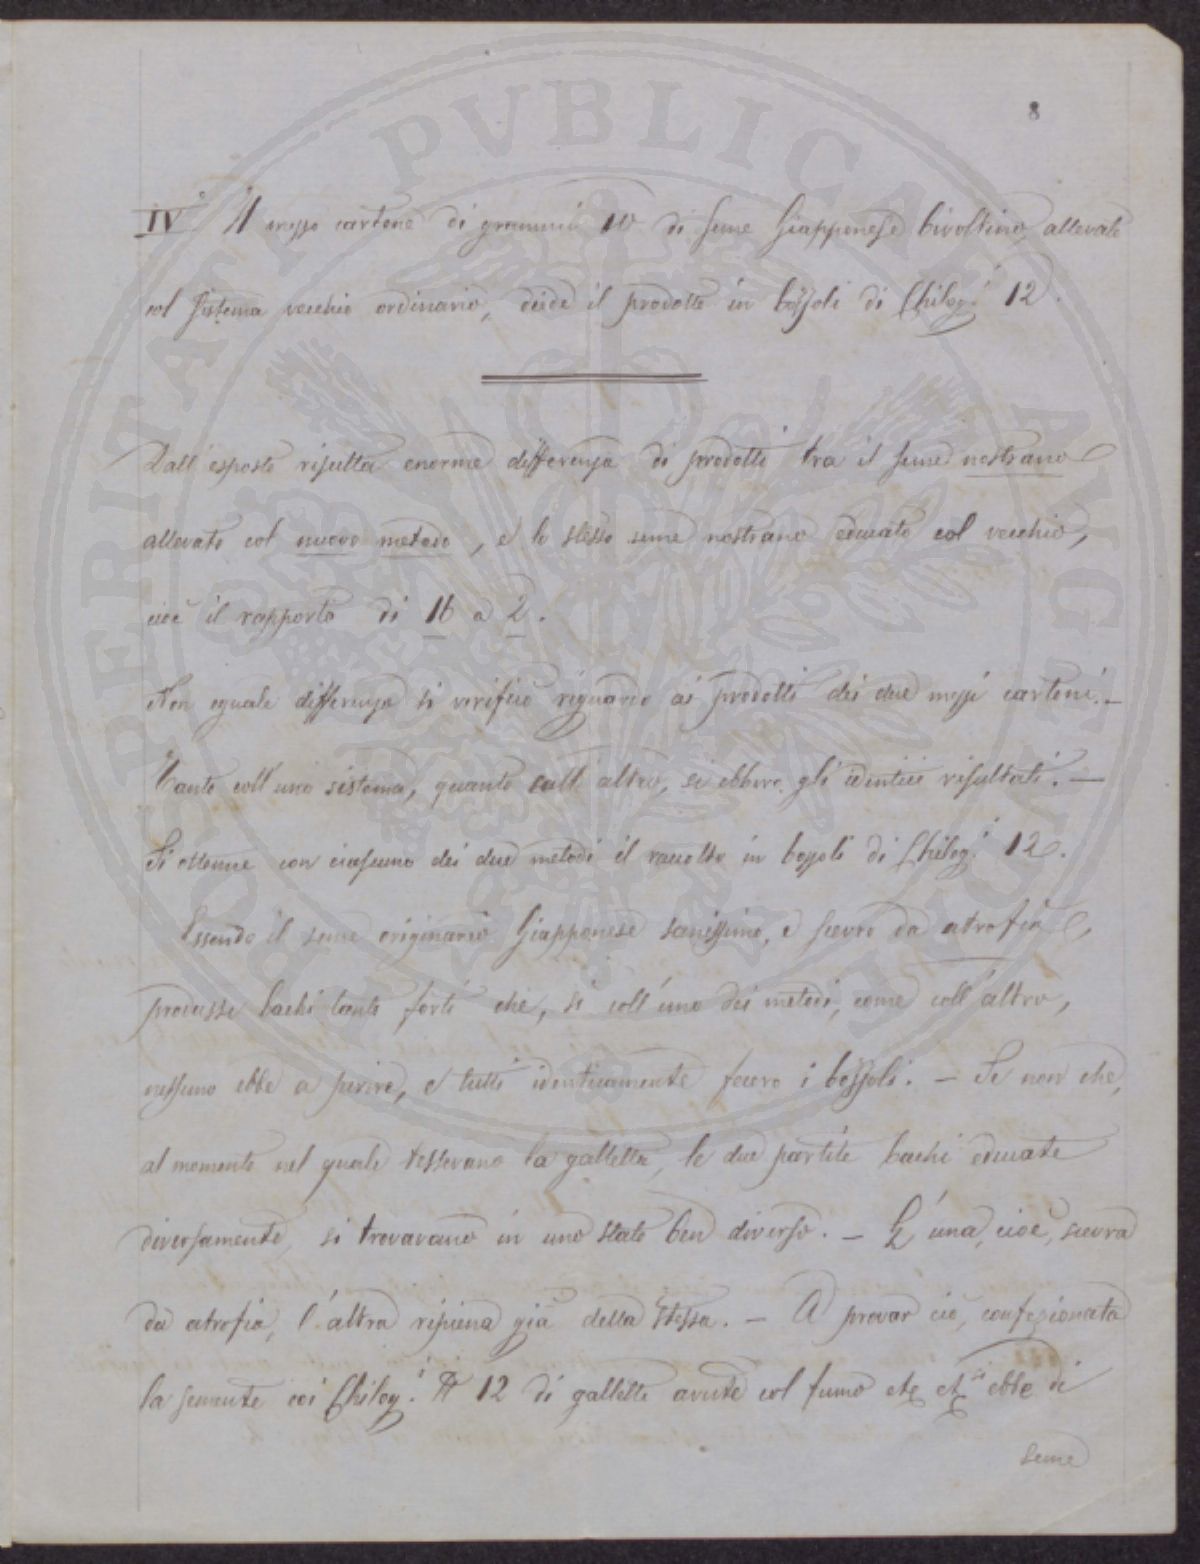 8
IV° Il mezzo cartone di grammi 10 di seme Giapponese bivoltino, allevato
col sistema vecchio ordinario, diede il prodotto in bozzoli di Chilog.i 12.
Dall'esposto risulta enorme differenza di prodotti tra il seme nostrano
allevato col nuovo metodo, e lo stesso seme nostrano educato col vecchio,
cioè il rapporto di 16 a 2.
Non eguale differenza si verificò riguardo ai prodotti dei due mezzi cartoni. —
Tanto coll'uno sistema, quanto coll'altro, si ebbero gli identici risultati. —
Si ottenne con ciascuno dei due metodi il raccolto in bozzoli di Chilog.i 12.
Essendo il seme originario Giapponese sanissimo, e scevro da atrofia,
produsse bachi tanto forti che, sì coll'uno dei metodi, come coll'altro,
nessuno ebbe a perire, e tutti identicamente fecero i bozzoli. — Se non che,
al momento nel quale tesserano la galletta, le due partite bachi educate
diversamente, si trovavano in uno stato ben diverso. — L'una, cioè, scevra
da atrofia, l'altra ripiena già della stessa. — A provar ciò, confezionata
la semente coi Chilog.i 12 di gallette avute col fumo etc etc si ebbe di
seme
PROSPERITATI PVBLICAE AVGENDAE